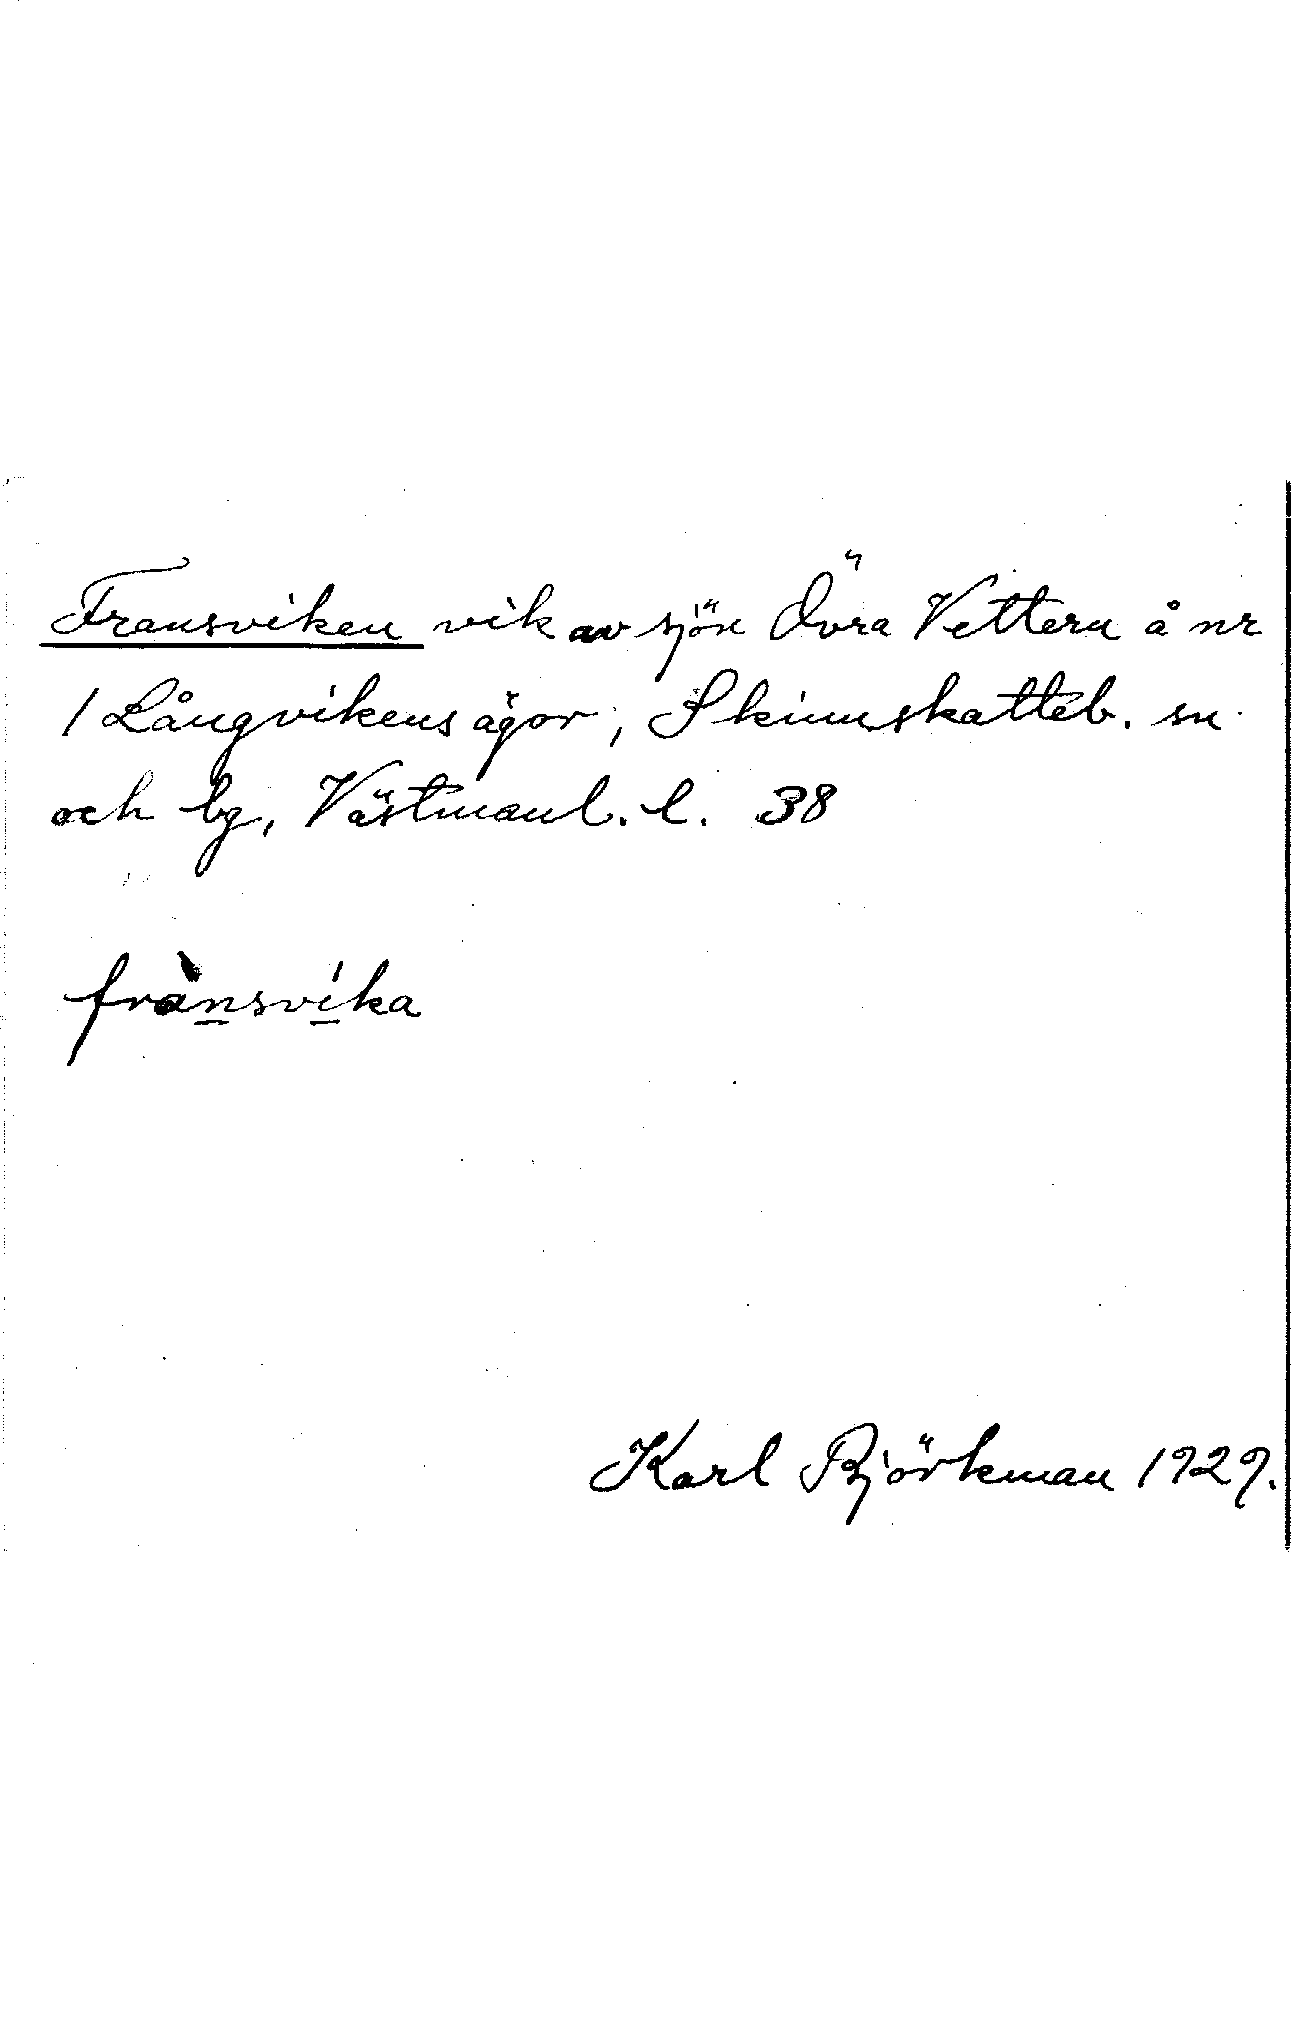 Fransviken vik av sjön Övra Vettern å nr
1 Långvikens ägor, Skinnskatteb. sn
och bg, Västmanl. l. 38
frànsvíka
Karl Björkman 1929.